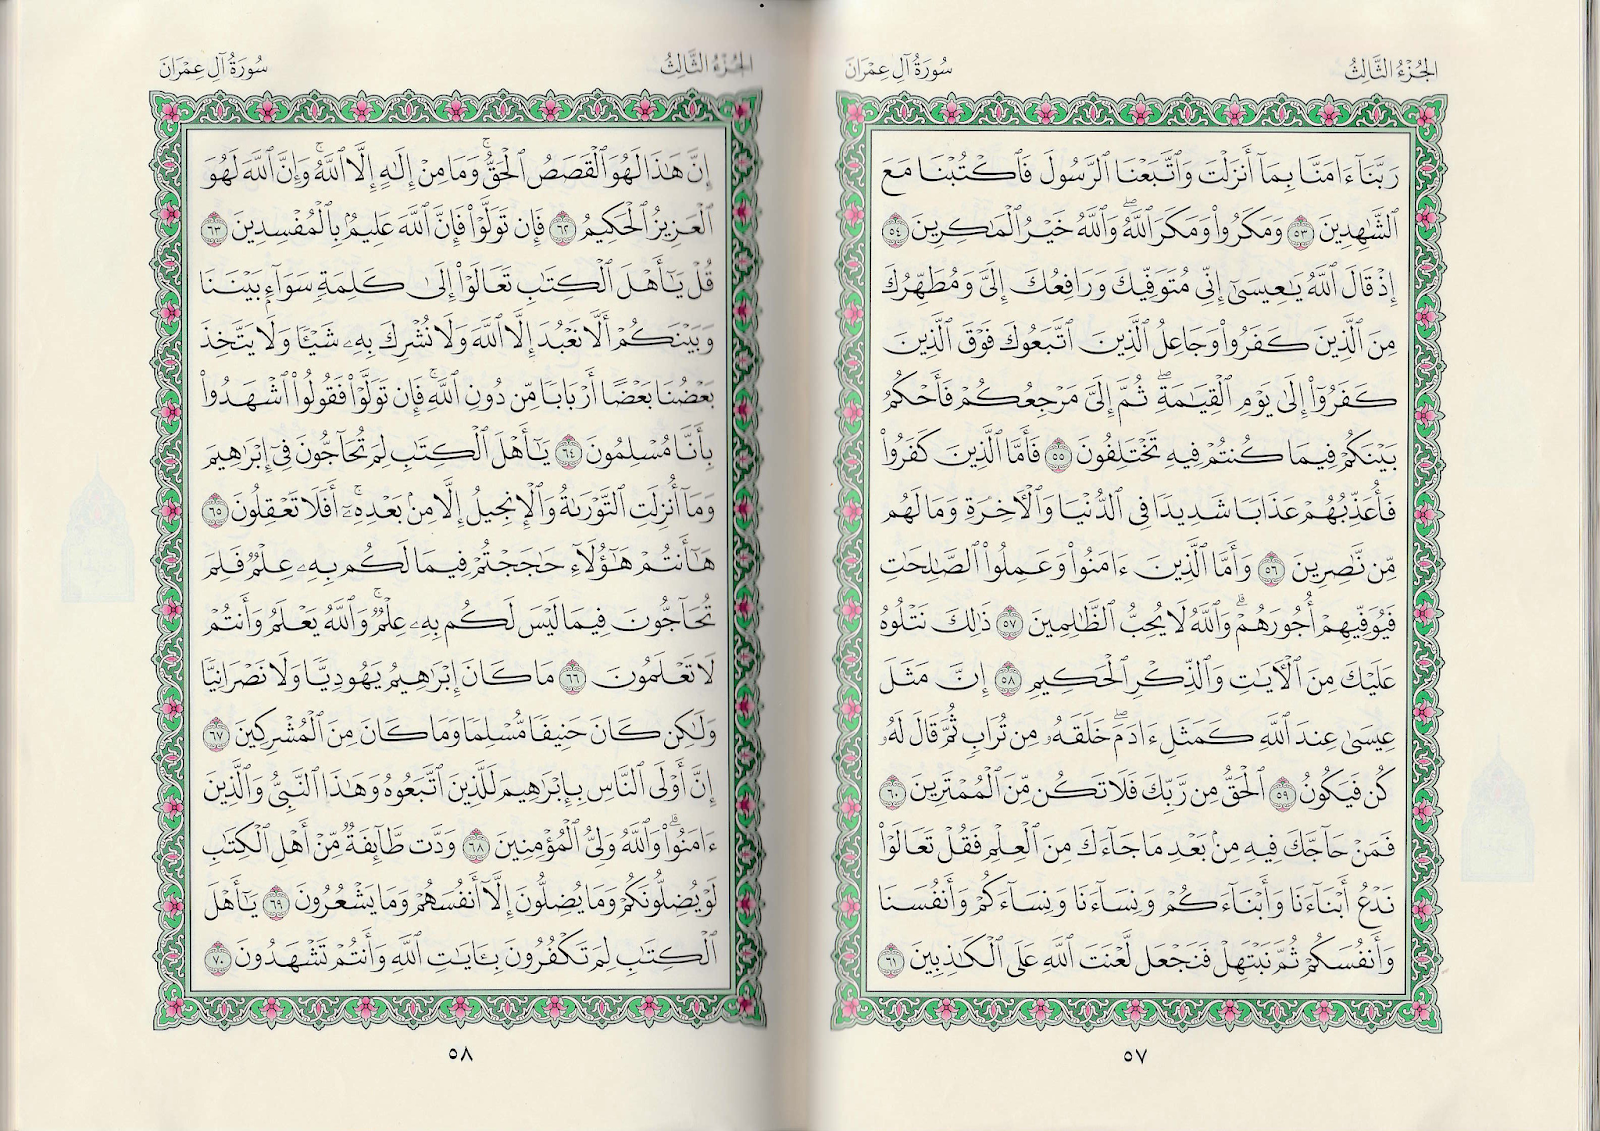 الجُزْءُ الثَّالِثُ
سُورَةُ آلِ عِمْرَانَ
رَبَّنَآ ءَامَنَّا بِمَآ أَنزَلْتَ وَٱتَّبَعْنَا ٱلرَّسُولَ فَٱكْتُبْنَا مَعَ
ٱلشَّٰهِدِينَ ٥٣ وَمَكَرُوا۟ وَمَكَرَ ٱللَّهُ ۖ وَٱللَّهُ خَيْرُ ٱلْمَٰكِرِينَ ٥٤
إِذْ قَالَ ٱللَّهُ يَٰعِيسَىٰٓ إِنِّى مُتَوَفِّيكَ وَرَافِعُكَ إِلَىَّ وَمُطَهِّرُكَ
مِنَ ٱلَّذِينَ كَفَرُوا۟ وَجَاعِلُ ٱلَّذِينَ ٱتَّبَعُوكَ فَوْقَ ٱلَّذِينَ
كَفَرُوٓا۟ إِلَىٰ يَوْمِ ٱلْقِيَٰمَةِ ۖ ثُمَّ إِلَىَّ مَرْجِعُكُمْ فَأَحْكُمُ
بَيْنَكُمْ فِيمَا كُنتُمْ فِيهِ تَخْتَلِفُونَ ٥٥ فَأَمَّا ٱلَّذِينَ كَفَرُوا۟
فَأُعَذِّبُهُمْ عَذَابًا شَدِيدًا فِى ٱلدُّنْيَا وَٱلْءَاخِرَةِ وَمَا لَهُم
مِّن نَّٰصِرِينَ ٥٦ وَأَمَّا ٱلَّذِينَ ءَامَنُوا۟ وَعَمِلُوا۟ ٱلصَّٰلِحَٰتِ
فَيُوَفِّيهِمْ أُجُورَهُمْ ۗ وَٱللَّهُ لَا يُحِبُّ ٱلظَّٰلِمِينَ ٥٧ ذَٰلِكَ نَتْلُوهُ
عَلَيْكَ مِنَ ٱلْءَايَٰتِ وَٱلذِّكْرِ ٱلْحَكِيمِ ٥٨ إِنَّ مَثَلَ
عِيسَىٰ عِندَ ٱللَّهِ كَمَثَلِ ءَادَمَ ۖ خَلَقَهُۥ مِن تُرَابٍ ثُمَّ قَالَ لَهُۥ
كُن فَيَكُونُ ٥٩ ٱلْحَقُّ مِن رَّبِّكَ فَلَا تَكُن مِّنَ ٱلْمُمْتَرِينَ ٦٠
فَمَنْ حَآجَّكَ فِيهِ مِنۢ بَعْدِ مَا جَآءَكَ مِنَ ٱلْعِلْمِ فَقُلْ تَعَالَوْا۟
نَدْعُ أَبْنَآءَنَا وَأَبْنَآءَكُمْ وَنِسَآءَنَا وَنِسَآءَكُمْ وَأَنفُسَنَا
وَأَنفُسَكُمْ ثُمَّ نَبْتَهِلْ فَنَجْعَل لَّعْنَتَ ٱللَّهِ عَلَى ٱلْكَٰذِبِينَ ٦١
٥٧
الجُزْءُ الثَّالِثُ
سُورَةُ آلِ عِمْرَانَ
إِنَّ هَٰذَا لَهُوَ ٱلْقَصَصُ ٱلْحَقُّ ۚ وَمَا مِنْ إِلَٰهٍ إِلَّا ٱللَّهُ ۚ وَإِنَّ ٱللَّهَ لَهُوَ
ٱلْعَزِيزُ ٱلْحَكِيمُ ٦٢ فَإِن تَوَلَّوْا۟ فَإِنَّ ٱللَّهَ عَلِيمٌۢ بِٱلْمُفْسِدِينَ ٦٣
قُلْ يَٰٓأَهْلَ ٱلْكِتَٰبِ تَعَالَوْا۟ إِلَىٰ كَلِمَةٍ سَوَآءٍۭ بَيْنَنَا
وَبَيْنَكُمْ أَلَّا نَعْبُدَ إِلَّا ٱللَّهَ وَلَا نُشْرِكَ بِهِۦ شَيْـًٔا وَلَا يَتَّخِذَ
بَعْضُنَا بَعْضًا أَرْبَابًا مِّن دُونِ ٱللَّهِ ۚ فَإِن تَوَلَّوْا۟ فَقُولُوا۟ ٱشْهَدُوا۟
بِأَنَّا مُسْلِمُونَ ٦٤ يَٰٓأَهْلَ ٱلْكِتَٰبِ لِمَ تُحَآجُّونَ فِىٓ إِبْرَٰهِيمَ
وَمَآ أُنزِلَتِ ٱلتَّوْرَىٰةُ وَٱلْإِنجِيلُ إِلَّا مِنۢ بَعْدِهِۦٓ ۚ أَفَلَا تَعْقِلُونَ ٦٥
هَٰٓأَنتُمْ هَٰٓؤُلَآءِ حَٰجَجْتُمْ فِيمَا لَكُم بِهِۦ عِلْمٌ فَلِمَ
تُحَآجُّونَ فِيمَا لَيْسَ لَكُم بِهِۦ عِلْمٌ ۚ وَٱللَّهُ يَعْلَمُ وَأَنتُمْ
لَا تَعْلَمُونَ ٦٦ مَا كَانَ إِبْرَٰهِيمُ يَهُودِيًّا وَلَا نَصْرَانِيًّا
وَلَٰكِن كَانَ حَنِيفًا مُّسْلِمًا وَمَا كَانَ مِنَ ٱلْمُشْرِكِينَ ٦٧
إِنَّ أَوْلَى ٱلنَّاسِ بِإِبْرَٰهِيمَ لَلَّذِينَ ٱتَّبَعُوهُ وَهَٰذَا ٱلنَّبِىُّ وَٱلَّذِينَ
ءَامَنُوا۟ ۗ وَٱللَّهُ وَلِىُّ ٱلْمُؤْمِنِينَ ٦٨ وَدَّت طَّآئِفَةٌ مِّنْ أَهْلِ ٱلْكِتَٰبِ
لَوْ يُضِلُّونَكُمْ وَمَا يُضِلُّونَ إِلَّآ أَنفُسَهُمْ وَمَا يَشْعُرُونَ ٦٩ يَٰٓأَهْلَ
ٱلْكِتَٰبِ لِمَ تَكْفُرُونَ بِـَٔايَٰتِ ٱللَّهِ وَأَنتُمْ تَشْهَدُونَ ٧٠
٥٨